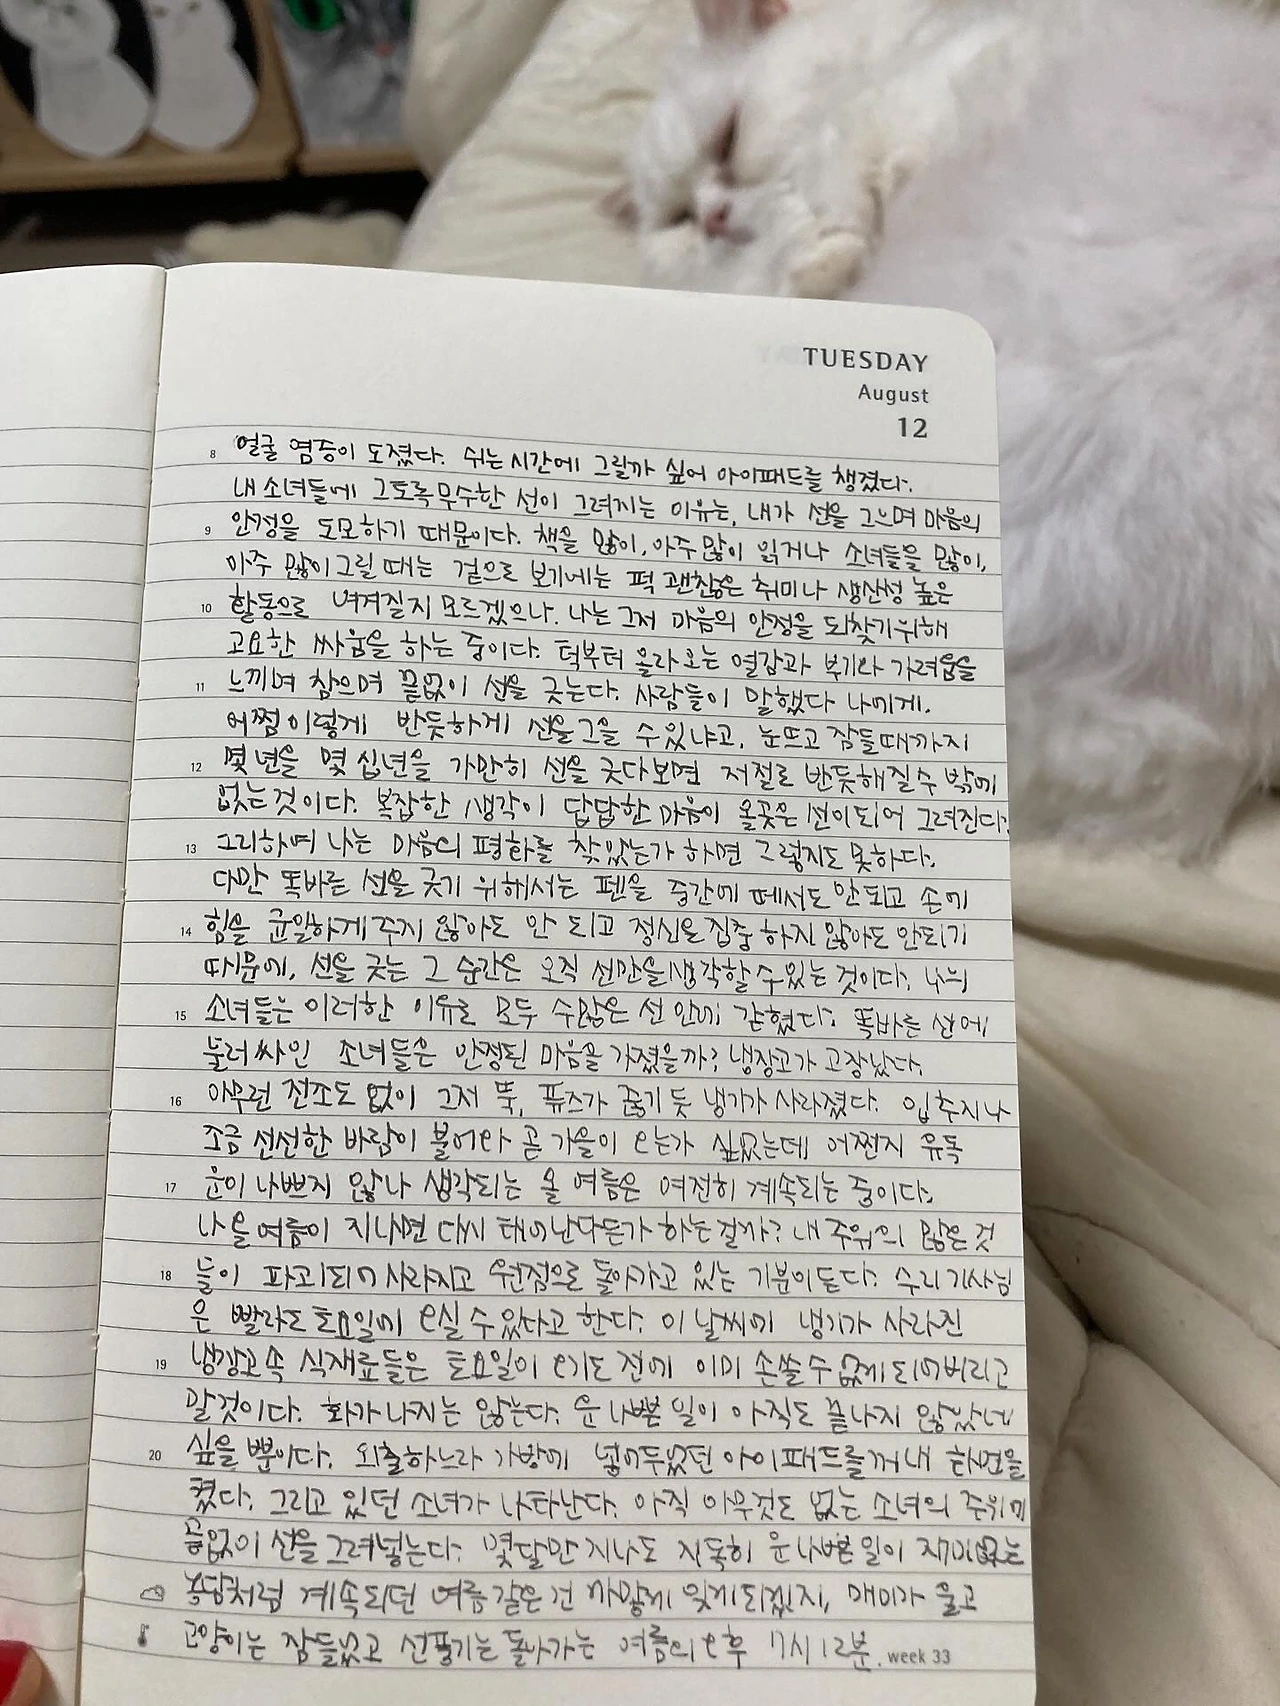 TUESDAY
August
12
8 얼굴 염증이 도졌다. 쉬는 시간에 그릴까 싶어 아이패드를 챙겼다.
내 소녀들에 그토록 무수한 선이 그려지는 이유는, 내가 선을 그으며 마음의
9 안정을 도모하기 때문이다. 책을 많이, 아주 많이 읽거나 소녀들을 많이,
아주 많이 그릴 때는 겉으로 보기에는 퍽 괜찮은 취미나 생산성 높은
10 활동으로 여겨질지 모르겠으나. 나는 그저 마음의 안정을 되찾기위해
고요한 싸움을 하는 중이다. 턱부터 올라오는 열감과 부기와 가려움을
11 느끼며 참으며 끝없이 선을 긋는다. 사람들이 말했다 나에게.
어쩜 이렇게 반듯하게 선을 그을 수 있냐고. 눈뜨고 잠들때까지
12 몇 년을 몇 십년을 가만히 선을 긋다보면 저절로 반듯해질수 밖에
없는것이다. 복잡한 생각이 답답한 마음이 올곧은 선이되어 그려진다.
13 그리하여 나는 마음의 평화를 찾았는가 하면 그렇지도 못하다.
다만 똑바른 선을 긋기 위해서는 펜을 중간에 떼서도 안되고 손에
14 힘을 균일하게 주지 않아도 안 되고 정신을 집중 하지 않아도 안되기
때문에, 선을 긋는 그 순간은 오직 선만을 생각할 수 있는 것이다. 나의
15 소녀들은 이러한 이유로 모두 수많은 선 안에 갇혔다. 똑바른 선에
둘러 싸인 소녀들은 안정된 마음을 가졌을까? 냉장고가 고장났다.
16 아무런 전조도 없이 그저 뚝, 퓨즈가 끊기듯 냉기가 사라졌다. 입추지나
조금 선선한 바람이 불어와 곧 가을이 오는가 싶었는데 어쩐지 유독
17 운이 나쁘지 않나 생각되는 올 여름은 여전히 계속되는 중이다.
나 올여름이 지나면 다시 태어난다든가 하는걸까? 내 주위의 많은 것
18 들이 파괴되어 사라지고 원점으로 돌아가고 있는 기분이 든다. 수리기사님
은 빨라도 토요일에 오실 수 있다고 한다. 이 날씨에 냉기가 사라진
19 냉장고 속 식재료들은 토요일이 오기도 전에 이미 손쓸수 없게 되어버리고
말것이다. 화가나지는 않는다. 운 나쁜 일이 아직도 끝나지 않았네
20 싶을 뿐이다. 외출하느라 가방에 넣어두었던 아이패드를 꺼내 화면을
켰다. 그리고 있던 소녀가 나타난다. 아직 아무것도 없는 소녀의 주위에
끝없이 선을 그려넣는다. 몇달만 지나도 지독히 운나쁜 일이 재미없는
농담처럼 계속되던 여름 같은 건 까맣게 잊게되겠지, 매미가 울고
고양이는 잠들었고 선풍기는 돌아가는 여름의 오후 1시 12분. week 33